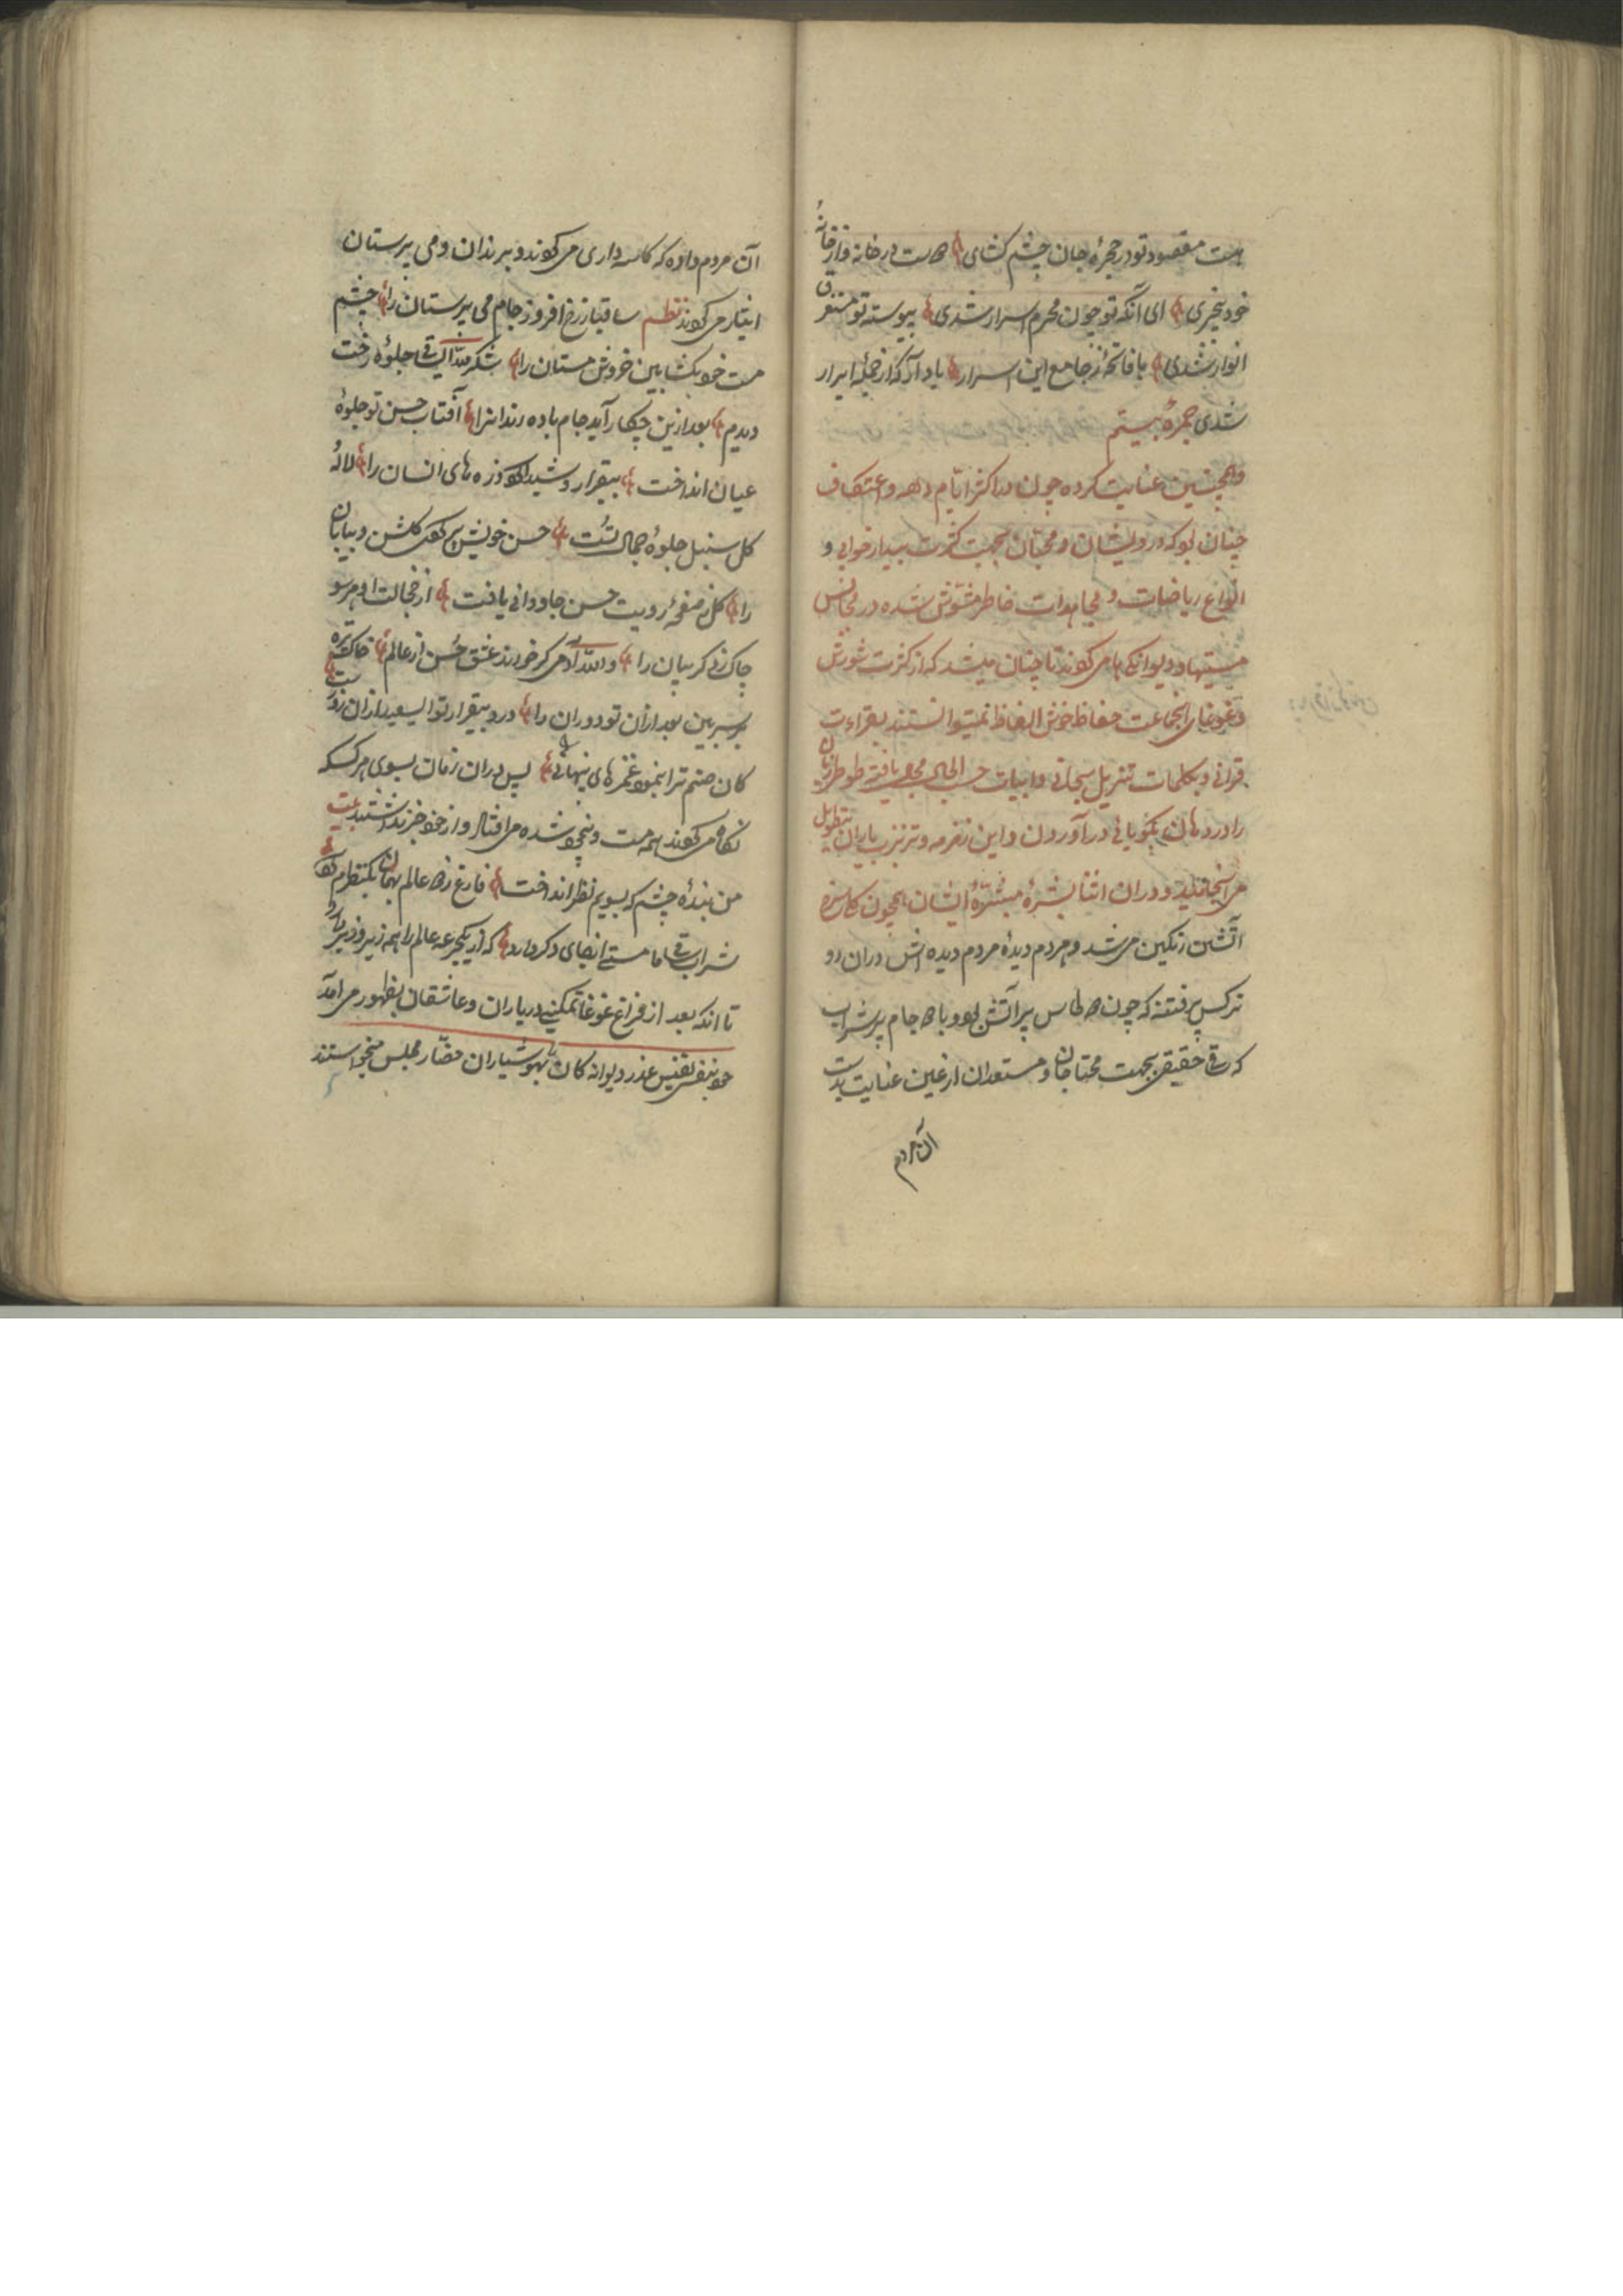 هست مقصود تو در حجرهٔ جان چشم کشای هست در خانه و از خانهٔ
خود بیخبری ای آنکه تو چون محرم اسرار شدی پیوسته تو مستغرق
انوار شدی با فاتحهٔ ز جامع این اسرار یاد آر که از جملهٔ ابرار
شدی جمرهٔ بیستم
و همچنین عنایت کرده چون در اکثر ایّام دهه و اعتکاف
چنان بود که درویشان و محبّان بجهت کثرت بیدارخوابی و
انواع ریاضات و مجاهدات خاطر مشوّش شده در مجالس
مستیها و دیوانکی ها می کردند تا چنان میشد که از کثرت شورش
و غوغای انجماعت حفاظ خوش الفاظ نمیتوانستند بقراءت
قرآنی و بکلمات تنزیل سبحانی و ابیات حسب الحال طوطی زبان
را در دهان بگویائی در آوردن و این زمزمه و ترنم
می انجامید و در ان اثنا بشرهٔ ایشان همچون کاسهٔ
آتشین رنکین می شد و مردم دیدهٔ مردم دیده اش در ان دو
نرکس پرفتنه که چون طاس پر آتش بود و یا جام پر شراب
که ساقی حقیقی بجهت محتاجان و مستعدان از عین عنایت بدست
آن مردم
آن مردم داده که کاسه داری می کردند و برندان و می پرستان
ایثار می کردند نظم ساقیا ز رخ افروز جام می پرستان را چشم
مست خود بکشا بین خروش مستان را شکر لله ای ساقی جلوهٔ رخت
دیدم بعد ازین چکار آید جام باده رندانرا آفتاب حسن تو جلوهٔ
عیان انداخت بیقرار و شیدا کرد ذره های انسان را لالهٔ
کل سنبل جلوهٔ جمال تست حسن خویش کلشن و بیابان
را کل ز صفحهٔ رویت حسن جاودانی یافت از خجالت او هر سو
چاک زد کریبان را والله آدمی کر خورد ز عشق حسن از عالم خاک تیره
بر سر بین بعد ازان تو دوران را درد بیقرار تو ای سعید ازان روزست
کان صنم ترا بنمود غمزهای پنهانی پس دران زمان بسوی هر کسکه
نکاه می کردند همه مست و بیخود شده می افتاد و از خود خبر نداشتند بیت
من بندهٔ چشم که بسویم نظر انداخت فارغ ز عالم بهمان یکنظرم کرد
شراب ساقی ما مستی انجای دکر دارد که از یکجرعه عالم را همه زیر و زبر دارد
تا انکه بعد از فراغ غوغا تمکینی در یاران و عاشقان بظهور می امد
خود بنفس نفیس عذر دیوانه کان با هوشیاران حضّار مجلس میخواستند